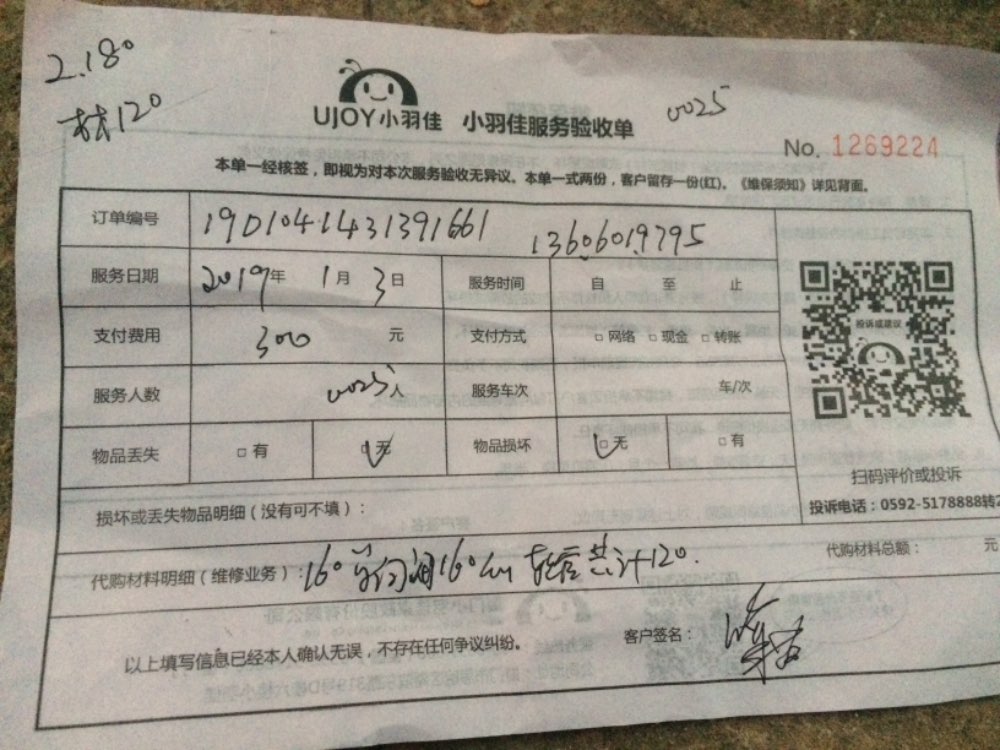 2.180
材120
UJOY小羽佳 小羽佳服务验收单
0025
No. 1269224
本单一经核签，即视为对本次服务验收无异议。本单一式两份，客户留存一份(红)。《维保须知》详见背面。
订单编号 19D10414431391661 13606019795
服务日期 2019年 1月 3日 服务时间 自 至 止
支付费用 300 元 支付方式 □网络 □现金 □转账
服务人数 0025人 服务车次 车/次
物品丢失 □有 □无 物品损坏 □无 □有
投诉或建议
扫码评价或投诉
投诉电话：0592-5178888转2
损坏或丢失物品明细（没有可不填）：
代购材料总额： 元
代购材料明细（维修业务）：160 160 软管共计120.
以上填写信息已经本人确认无误，不存在任何争议纠纷。 客户签名：